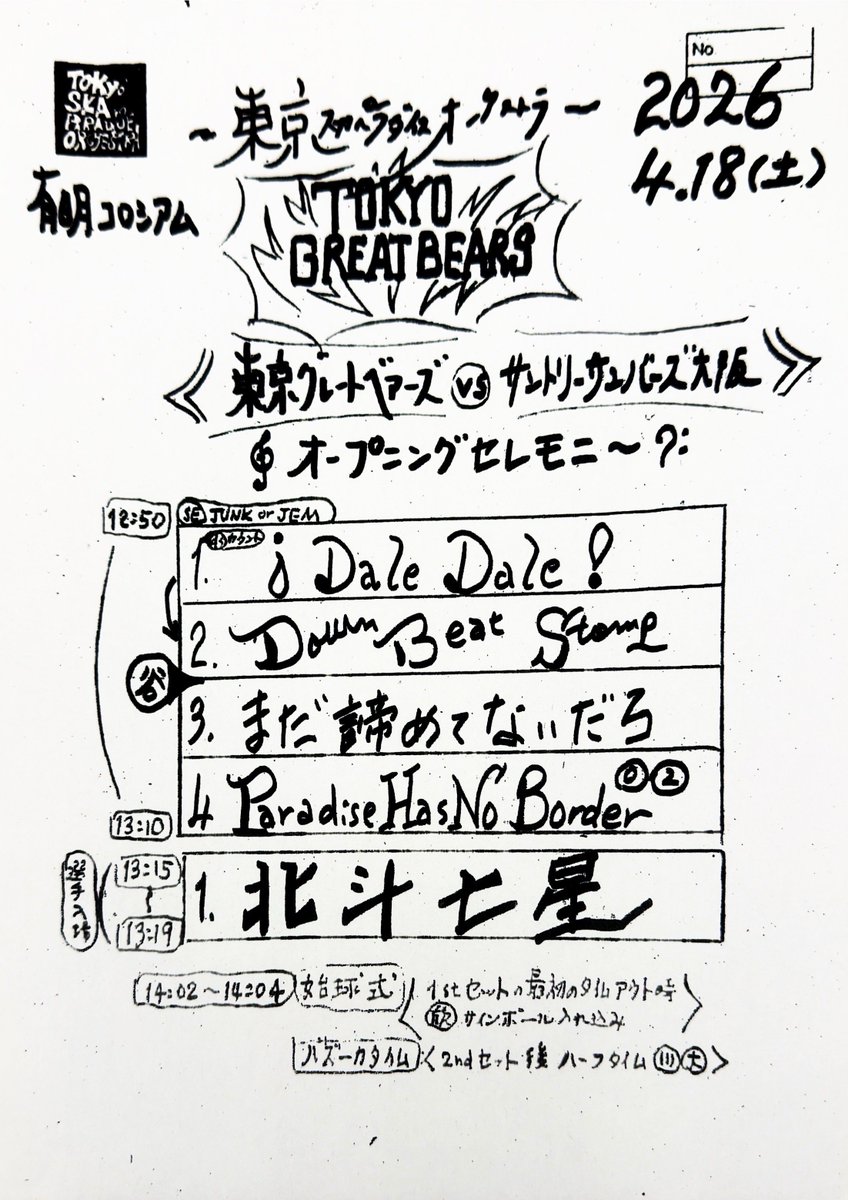 No
TOKYO
SKA
PARADISE
ORCHESTRA
~東京スカパラダイスオーケストラ~
2026
4.18(土)
有明コロシアム
TOKYO
GREAT BEARS
≪東京グレートベアーズ VS サントリーサンバーズ大阪≫
オープニングセレモニ〜
12:50
SE JUNK or JEM
1. カウント ¡Dale Dale!
2. Down Beat Stomp
谷
3. まだ諦めてないだろ
4 Paradise Has No Border 0 2
13:10
選手入場
13:15
〜
13:19
1. 北斗七星
14:02〜14:04 始球式 1stセットの最初のタイムアウト時
欣 サインボール入れ込み
バズーカタイム 〈2ndセット後 ハーフタイム 川 大〉